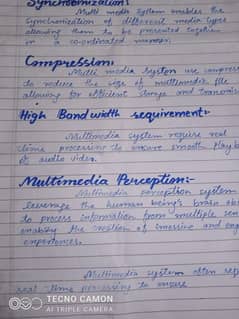 Synchronization:
Multi media system enables the
synchronization of different media types
allowing them to be presented together
in a co-ordinated manner.
Compression:
Multi media system use compress
to reduce the size of multimedia file
allowing for efficient storage and transmis
High Band width requirement:-
Multimedia system require real
time processing to ensure smooth playb
of audio video.
Multimedia Perception:-
Multimedia perception system
leverage the human being's brain ab
to process information from multiple sen
enabling the creation of immersive and eng
experiences.
Multimedia system often req
real-time processing to ensure
TECNO CAMON
AI TRIPLE CAMERA